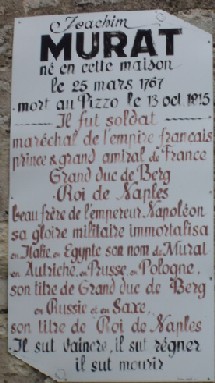 Joachim
MURAT
né en cette maison
le 25 mars 1767
mort au Pizzo, le 13 oct 1815
Il fut soldat
maréchal de l'empire français
prince & grand amiral de France
Grand duc de Berg
Roi de Naples
beau frère de l'empereur Napoléon
sa gloire militaire immortalisa
en Italie en Egypte son nom de Murat
en Autriche, en Prusse, en Pologne,
son titre de Grand duc de Berg
en Russie et en Saxe,
son titre de Roi de Naples
Il sut vaincre, il sut régner
il sut mourir